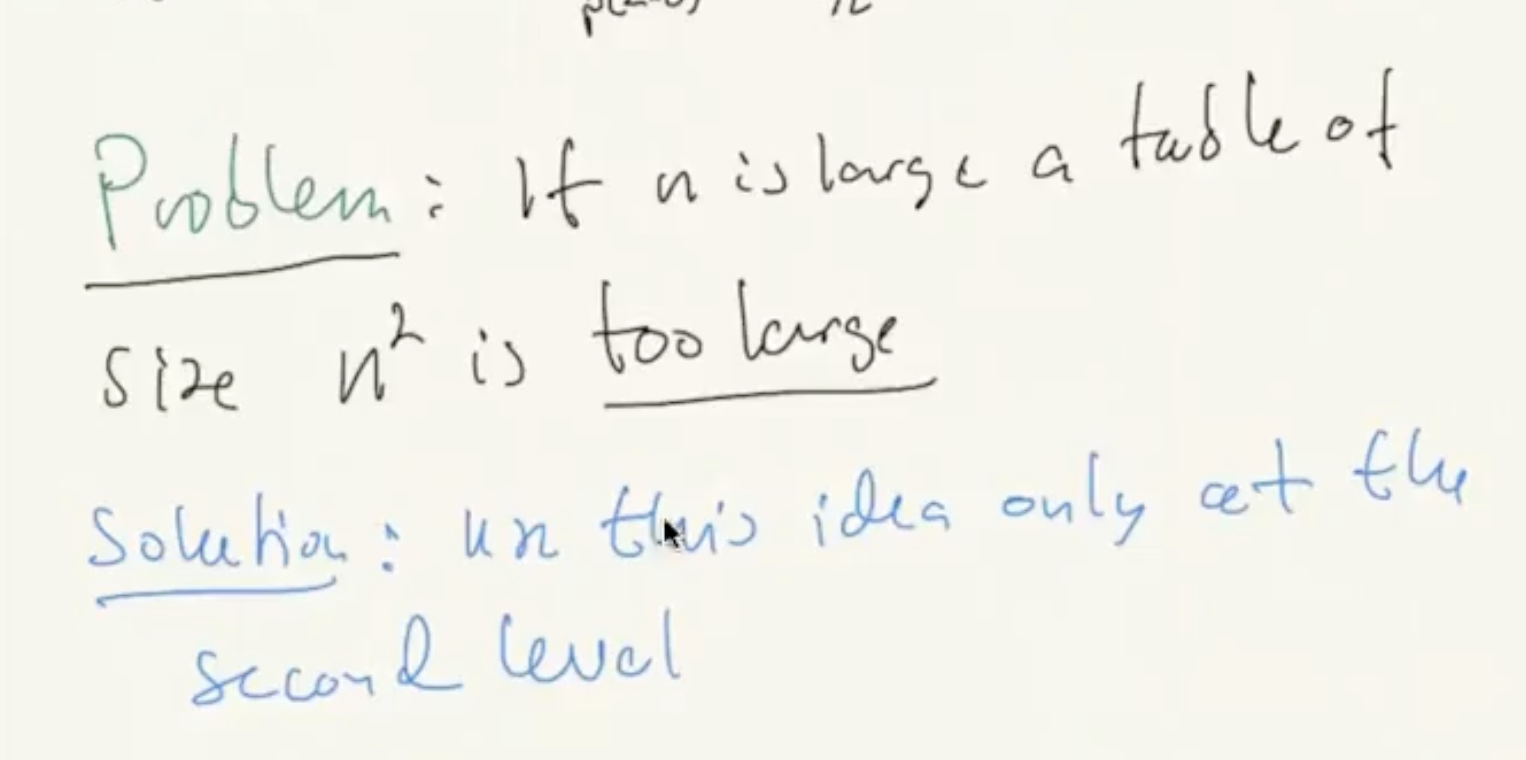 Problem: If n is large a table of
size n² is too large
Solution: use this idea only at the
second level